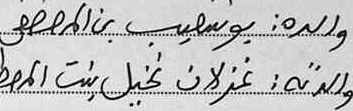 والده: بوشعيب بن المصطفى
والدته: غزلان نخيل بنت المصط